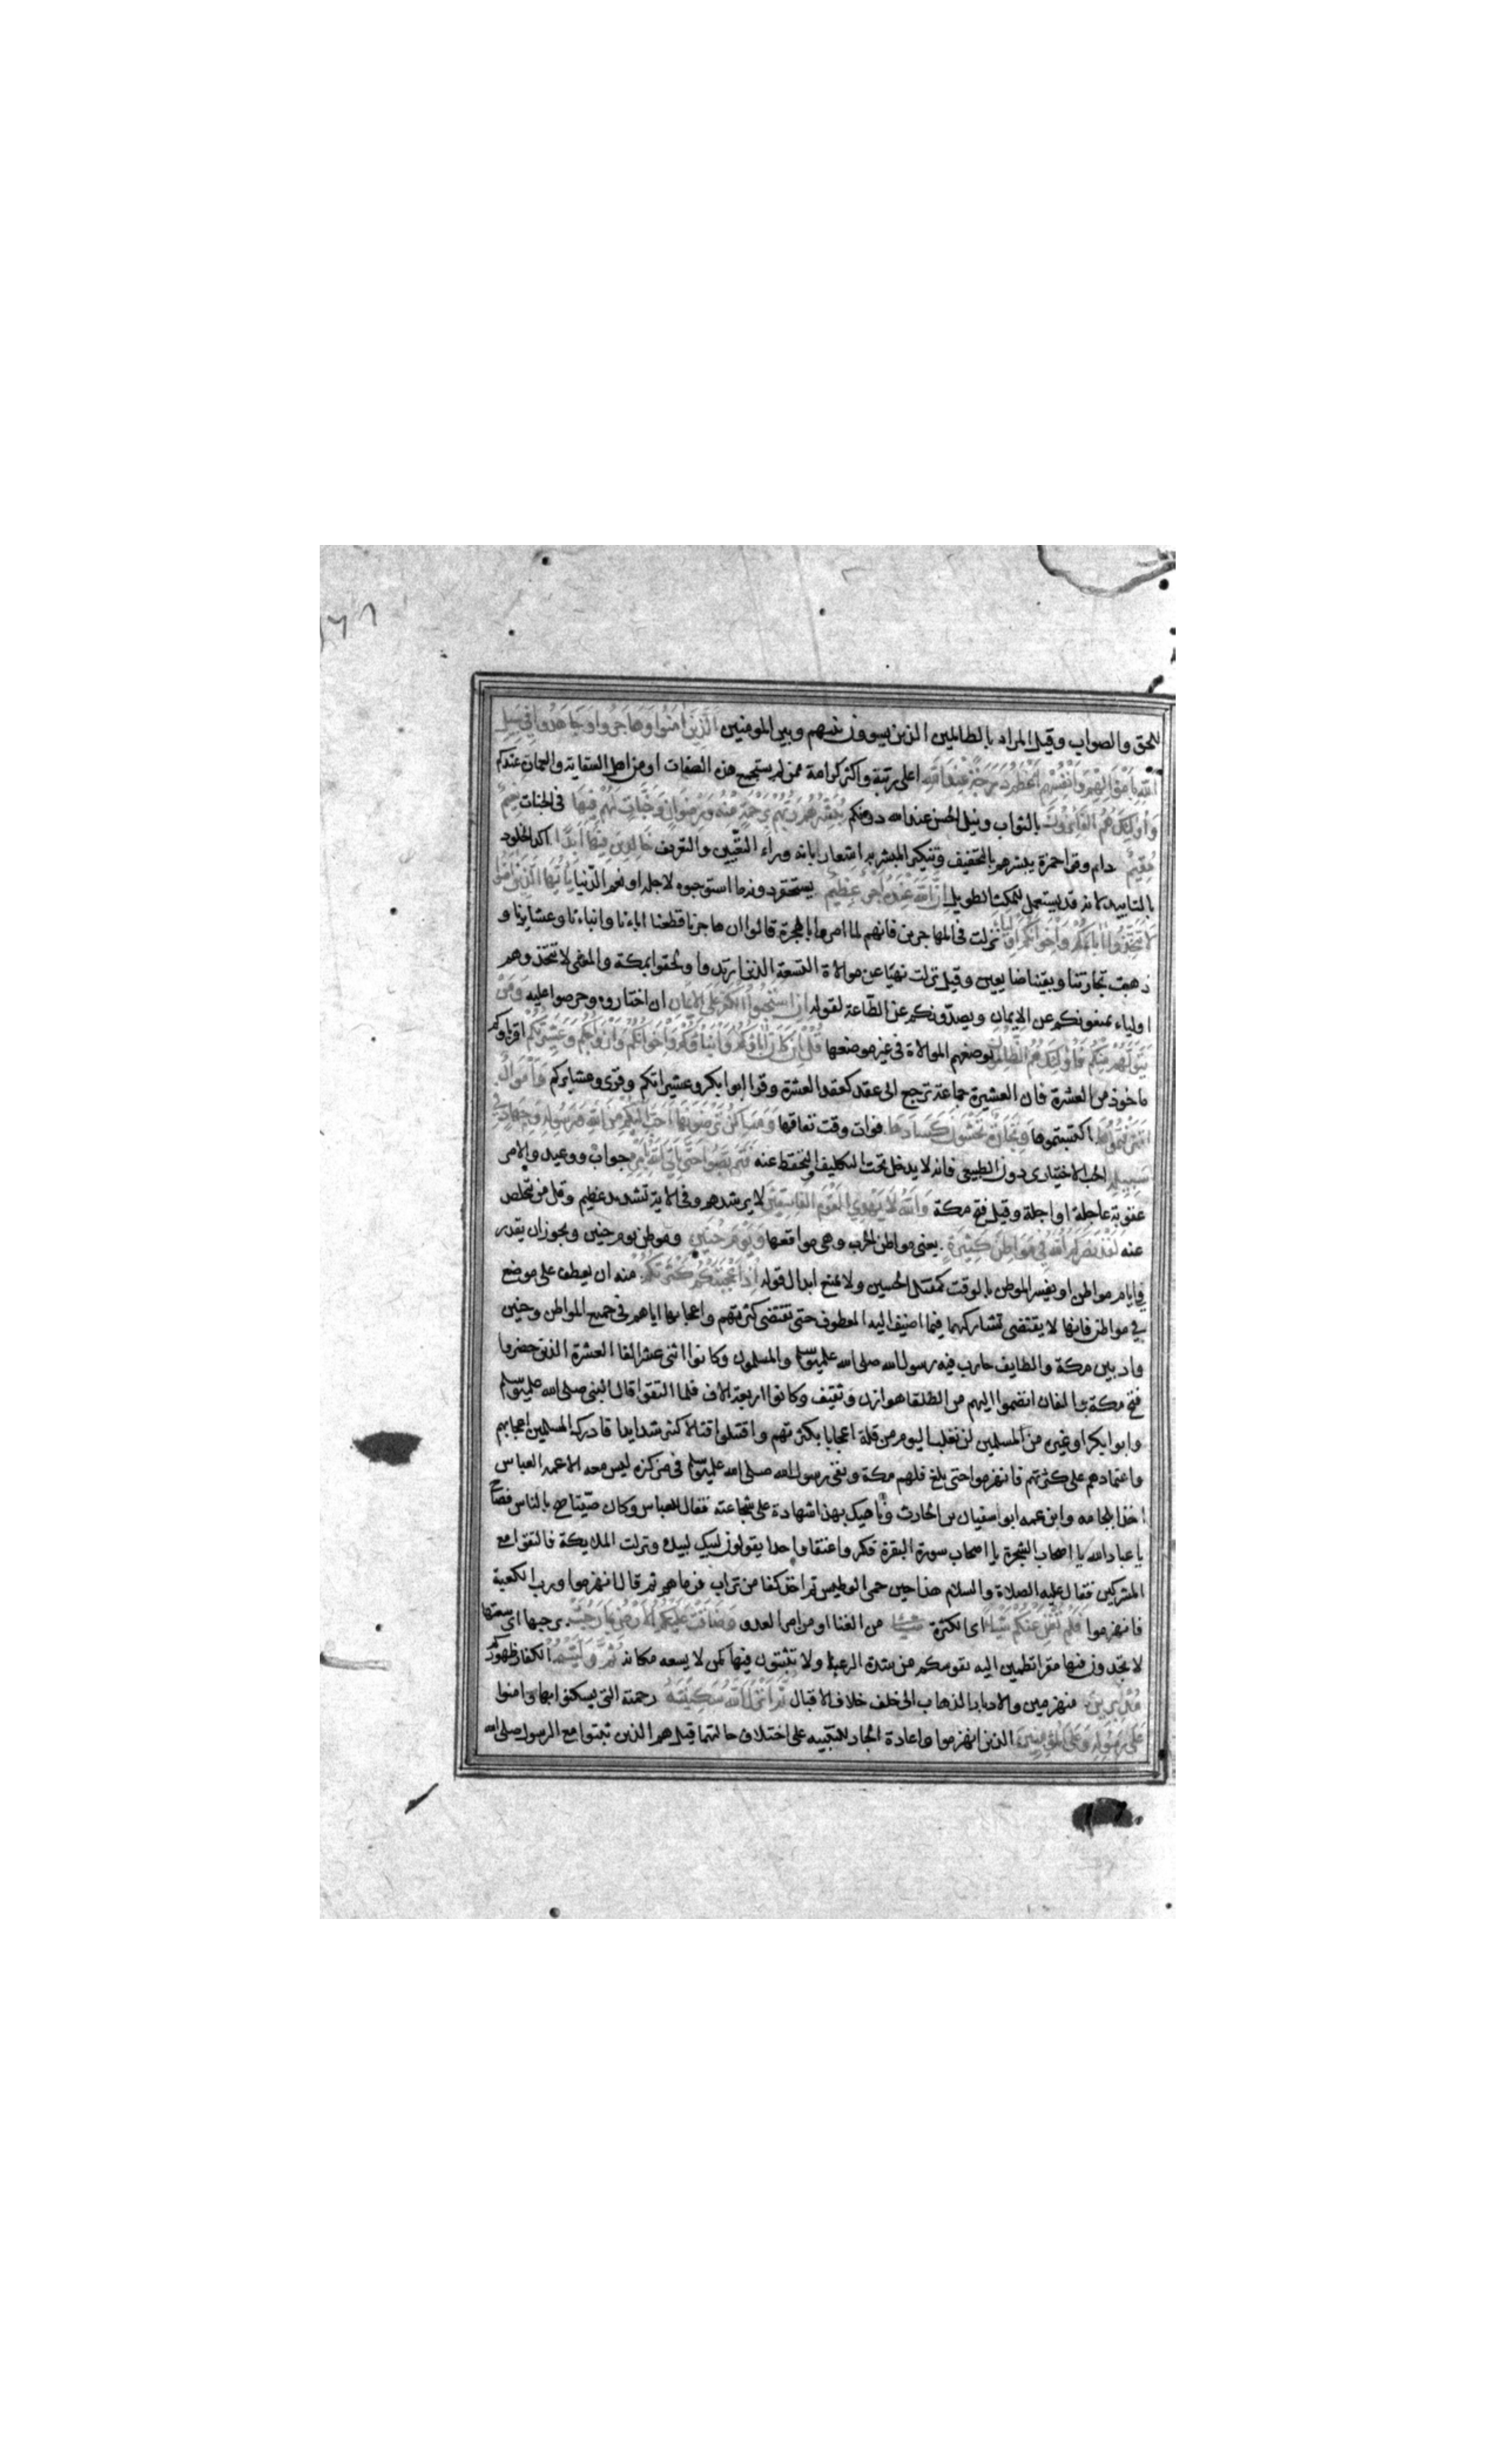 للحق والصواب وقيل المراد بالظالمين الذين يسوون بينهم وبين المومنين الَّذِينَ آمَنُوا وَهَاجَرُوا وَجَاهَدُوا فِي سَبِيلِ
اللَّهِ بِأَمْوَالِهِمْ وَأَنْفُسِهِمْ أَعْظَمُ دَرَجَةً عِنْدَ اللَّهِ اعلى رتبة واكثر كرامة ممن لم يستجمع هذه الصفات او من اهل السقاية والعمارة عندكم
وَأُولَئِكَ هُمُ الْفَائِزُونَ بالثواب ونيل الحسنى عند الله دونكم يُبَشِّرُهُمْ رَبُّهُمْ بِرَحْمَةٍ مِنْهُ وَرِضْوَانٍ وَجَنَّاتٍ لَهُمْ فِيهَا فى الجنات نَعِيمٌ
مُقِيمٌ دايم وقرا حمزة يبشرهم بالتخفيف وتنكير المبشر به اشعار بانه وراء التعيين والتعريف خَالِدِينَ فِيهَا أَبَدًا اكد الخلود
بالتابيد لانه قد يستعمل للمكث الطويل إِنَّ اللَّهَ عِنْدَهُ أَجْرٌ عَظِيمٌ يستحقر دونه ما استوجبوه لاجله او نعم الدنيا يَا أَيُّهَا الَّذِينَ آمَنُوا
لَا تَتَّخِذُوا آبَاءَكُمْ وَإِخْوَانَكُمْ أَوْلِيَاءَ نزلت فى المهاجرين فانهم لما امروا بالهجرة قالوا ان هاجرنا قطعنا اباءنا وابناءنا وعشايرنا و
ذهبت تجارتنا وبقينا ضايعين وقيل نزلت نهيا عن موالاة التسعة الذين ارتدوا ولحقوا بمكة والمعنى لا تتخذوهم
اولياء يمنعونكم عن الايمان ويصدونكم عن الطاعة لقوله إِنِ اسْتَحَبُّوا الْكُفْرَ عَلَى الْإِيمَانِ ان اختاروه وحرصوا عليه وَمَنْ
يَتَوَلَّهُمْ مِنْكُمْ فَأُولَئِكَ هُمُ الظَّالِمُونَ بوضعهم الموالاة فى غير موضعها قُلْ إِنْ كَانَ آبَاؤُكُمْ وَأَبْنَاؤُكُمْ وَإِخْوَانُكُمْ وَأَزْوَاجُكُمْ وَعَشِيرَتُكُمْ اقرباوكم
ماخوذ من العشرة فان العشيرة جماعة ترجع الى عقد كعقد العشرة وقرا ابوا بكر وعشيراتكم وقرى وعشايركم وَأَمْوَالٌ
اقْتَرَفْتُمُوهَا اكتسبتموها وَتِجَارَةٌ تَخْشَوْنَ كَسَادَهَا فوات وقت نفاقها وَمَسَاكِنُ تَرْضَوْنَهَا أَحَبَّ إِلَيْكُمْ مِنَ اللَّهِ وَرَسُولِهِ وَجِهَادٍ فِي
سَبِيلِهِ الحب الاختيارى دون الطبيعى فانه لا يدخل تحت التكليف والتحفظ عنه فَتَرَبَّصُوا حَتَّى يَأْتِيَ اللَّهُ بِأَمْرِهِ جواب ووعيد والامر
عقوبة عاجلة او اجلة وقيل فتح مكة وَاللَّهُ لَا يَهْدِي الْقَوْمَ الْفَاسِقِينَ لا يرشدهم وفى الاية تشديد عظيم وقل من يتخلص
عنه لَقَدْ نَصَرَكُمُ اللَّهُ فِي مَوَاطِنَ كَثِيرَةٍ يعنى مواطن الحرب وهى مواقعها وَيَوْمَ حُنَيْنٍ وموطن يوم حنين ويجوز ان يقدر
فى ايام مواطن او يفسر الموطن بالوقت كمقتل الحسين ولا يمنع ابدال قوله إِذْ أَعْجَبَتْكُمْ كَثْرَتُكُمْ منه ان يعطف على موضع
فى مواطن فانها لا يقتضى تشاركهما فيما اضيف اليه المعطوف حتى تقتضى كثرتهم واعجابها اياهم فى جميع المواطن وحنين
واد بين مكة والطايف حارب فيه رسول الله صلى الله عليه وسلم والمسلمون وكانوا اثنى عشر الفا العشرة الذين حضروا
فتح مكة والفان انضموا اليهم من الطلقا هوازن وثقيف وكانوا اربعة الاف فلما التقوا قال النبى صلى الله عليه وسلم
وابوا بكر او غيره من المسلمين لن نغلب اليوم من قلة اعجابا بكثرتهم واقتتلوا قتالا كثر شدايدا فادرك المسلمين اعجابهم
واعتمادهم على كثرتهم فانهزموا حتى بلغ فلهم مكة وبقى رسول الله صلى الله عليه وسلم فى مركزه ليس معه الا عمه العباس
اخذا بلجامه وابن عمه ابوا سفيان بن الحارث وناهيك بهذا شهادة على شجاعته فقال للعباس وكان صيتا صح بالناس فصاح
يا عباد الله يا اصحاب الشجرة يا اصحاب سورة البقرة فكروا عنقا واحدا يقولون لبيك لبيك ونزلت الملايكة فالتقوا مع
المشركين فقال عليه الصلاة والسلام هذا حين حمى الوطيس ثم اخذ كفا من تراب فرماهم ثم قال انهزموا ورب الكعبة
فانهزموا فَلَمْ تُغْنِ عَنْكُمْ شَيْئًا اى الكثرة شيئا من الغنا او من امر العدو وَضَاقَتْ عَلَيْكُمُ الْأَرْضُ بِمَا رَحُبَتْ برحبها اى سعتها
لا تجدون فيها مقرا تطمين اليه نفوسكم من شدة الرعب او لا تثبتون فيها كمن لا يسعه مكانه ثُمَّ وَلَّيْتُمْ الكفار ظهوركم
مُدْبِرِينَ منهزمين والادبار الذهاب الى خلف خلاف الاقبال ثُمَّ أَنْزَلَ اللَّهُ سَكِينَتَهُ رحمته التى يسكنوا بها وامنوا
عَلَى رَسُولِهِ وَعَلَى الْمُؤْمِنِينَ الذين انهزموا واعادة الجار للتنبيه على اختلاف حاليهما وقيل هم الذين ثبتوا مع الرسول صلى الله